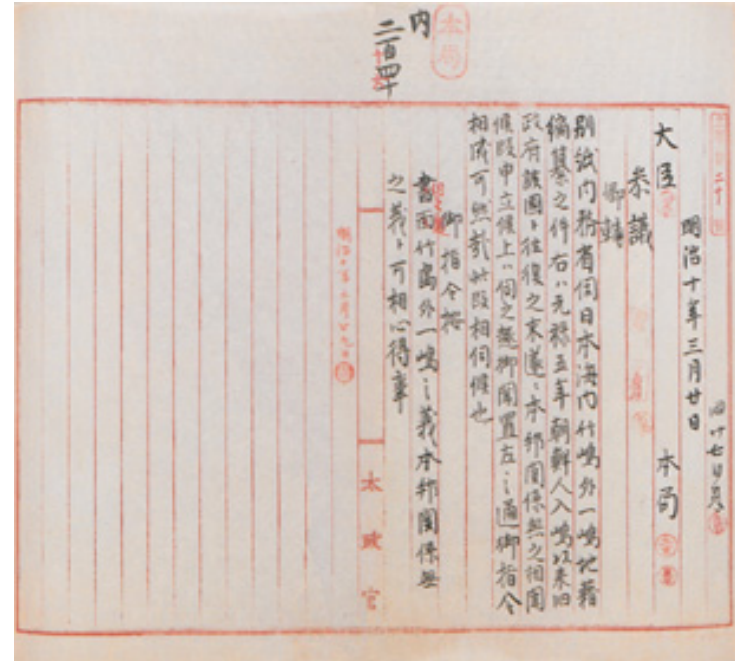 本局
内
二百四十
同廿七日
明治十年三月廿日
大臣
本局
参議
卿輔
別紙内務省伺日本海内竹嶋外一嶋地籍
編纂之件右ハ元禄五年朝鮮人入嶋以来旧
政府該国ト往復之末遂ニ本邦関係無之相聞
候段申立候上ハ伺之趣御聞置左之通御指令
相成可然哉此段相伺候也
御指令按
書面竹島外一嶋之義本邦関係無
之義ト可相心得事
明治十年三月廿九日
太政官